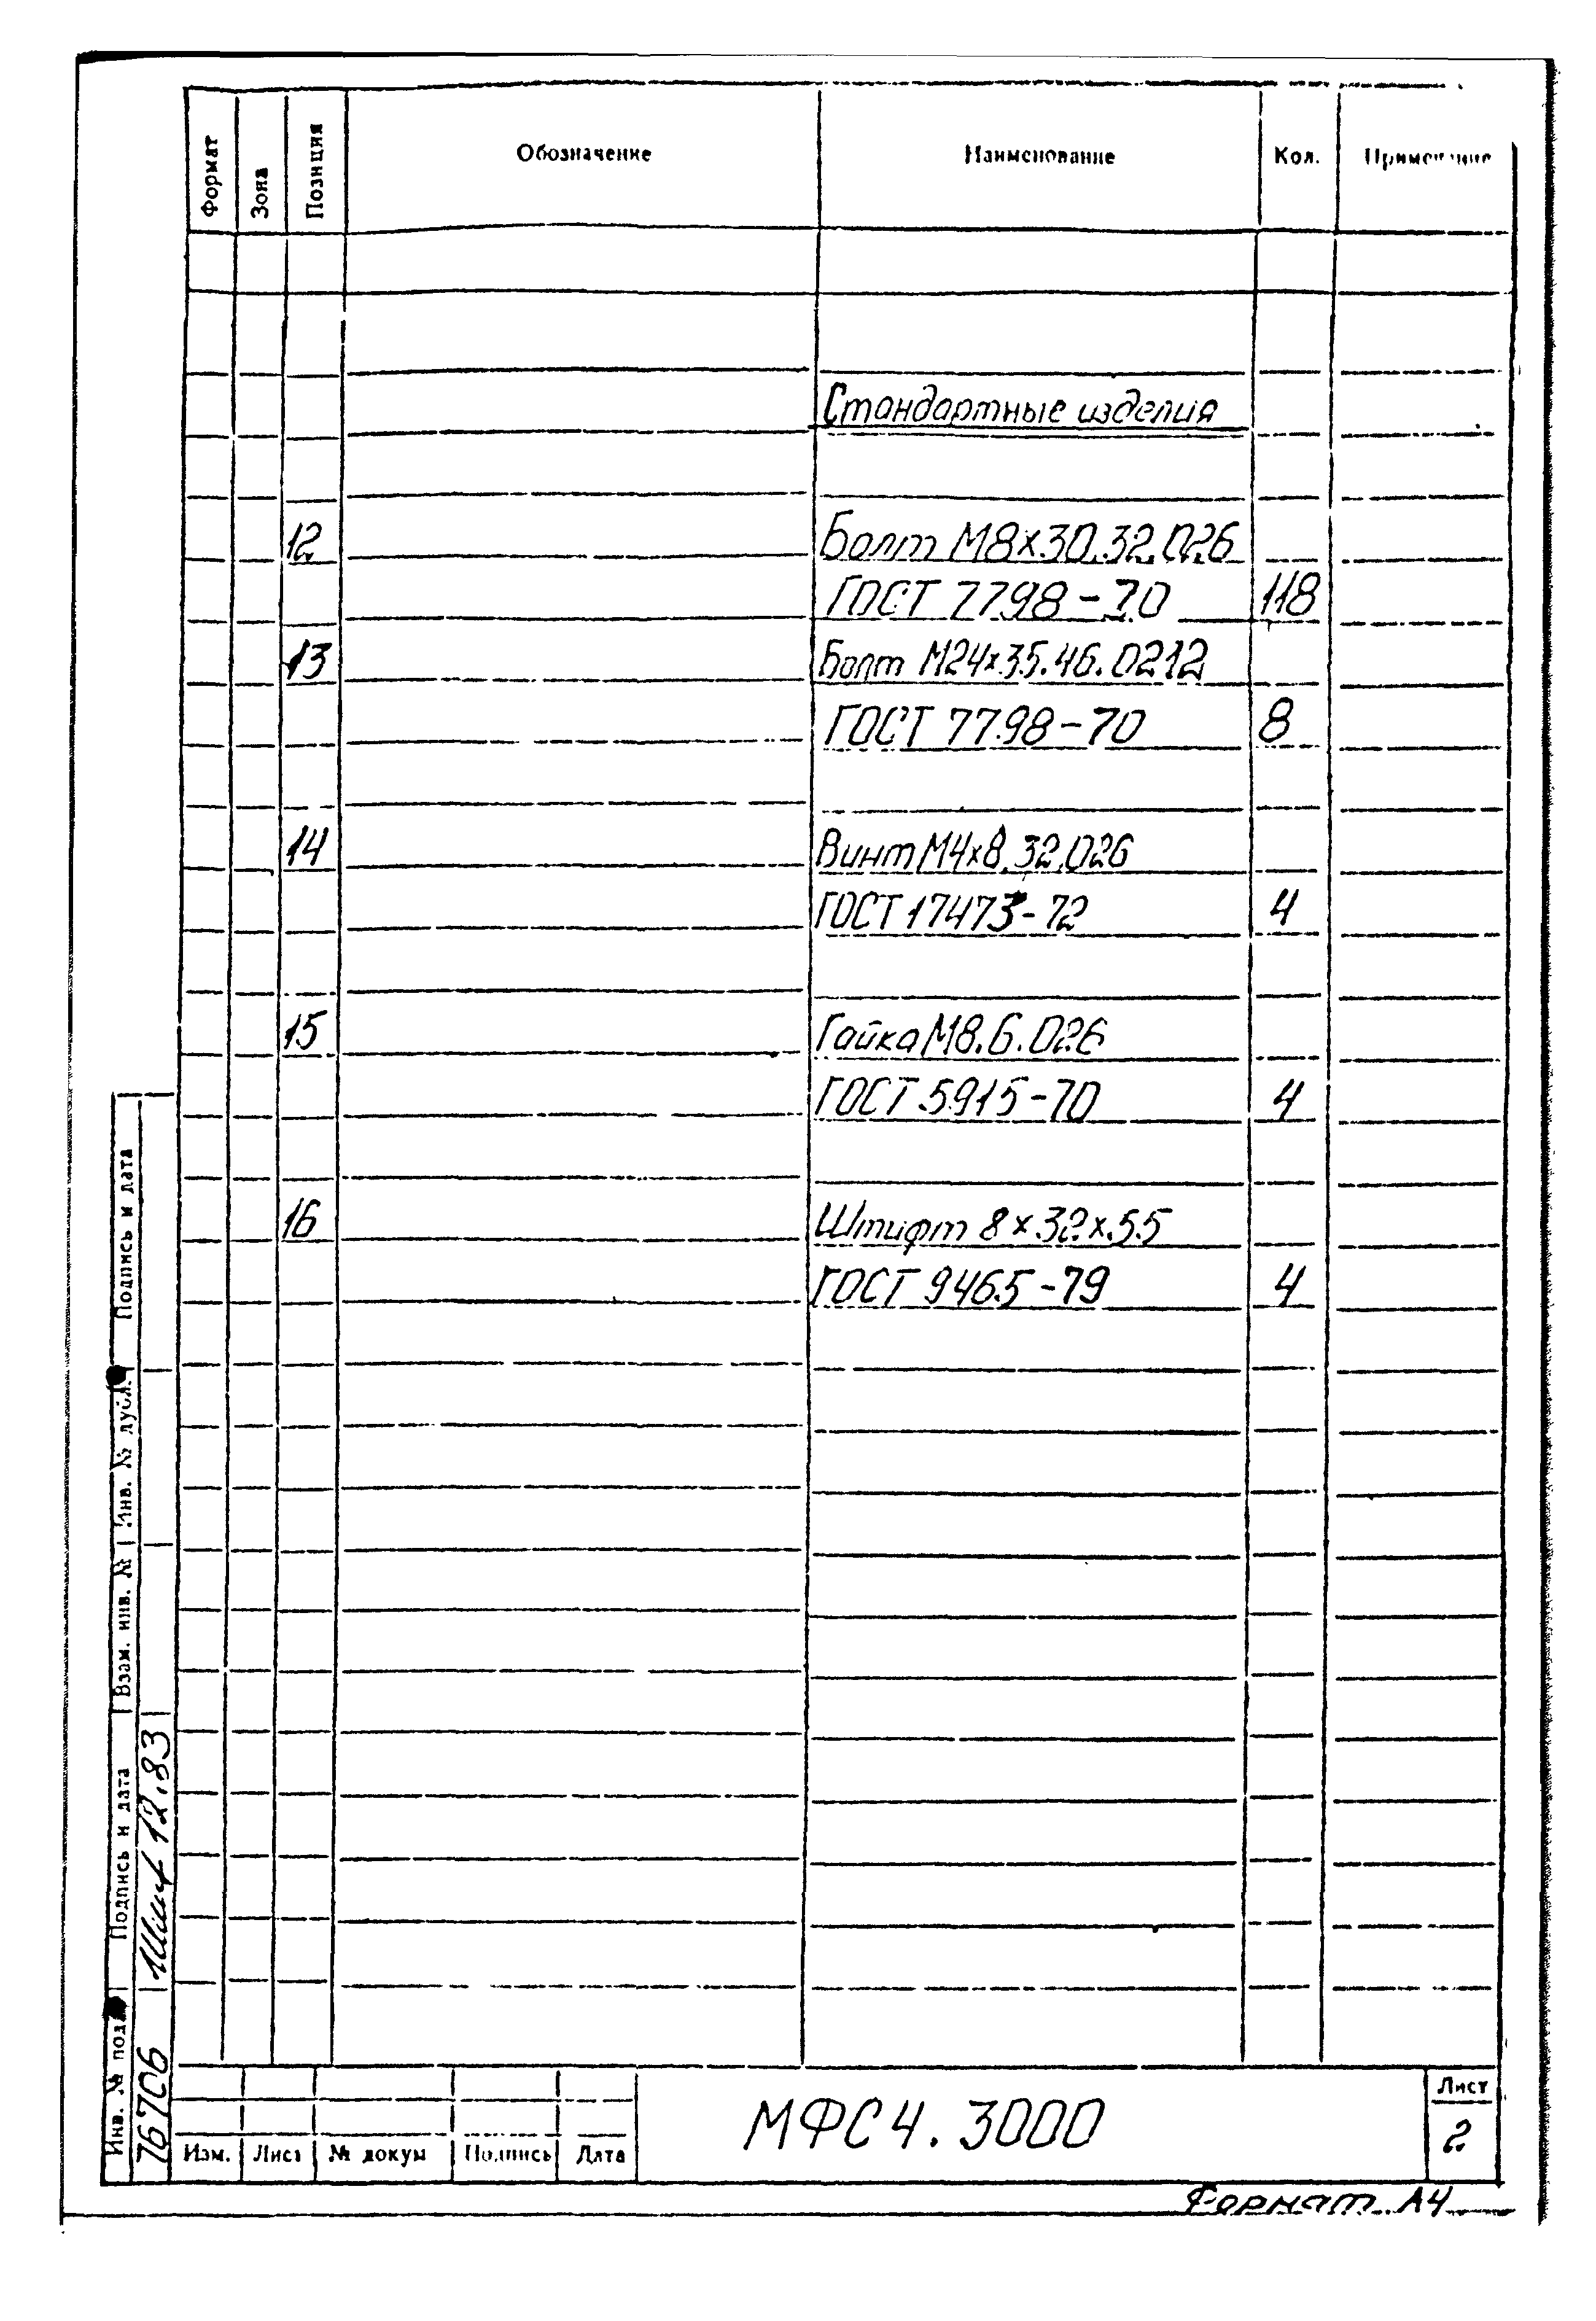 Формат
Зона
Позиция
Обозначение
Наименование
Кол.
Примечание
Стандартные изделия
12 Болт М8х30.32.026
ГОСТ 7798-70 118
13 Болт М24х35.46.0212
ГОСТ 7798-70 8
14 Винт М4х8.32.026
ГОСТ 17473-72 4
15 Гайка М8.6.026
ГОСТ 5915-70 4
16 Штифт 8х32х55
ГОСТ 9465-79 4
Подпись и дата
Инв. № дубл.
Взам. инв. №
Подпись и дата
12.83
Инв. № подл
76706
Изм. Лист № докум Подпись Дата
МФС4.3000
Лист
2
Формат А4